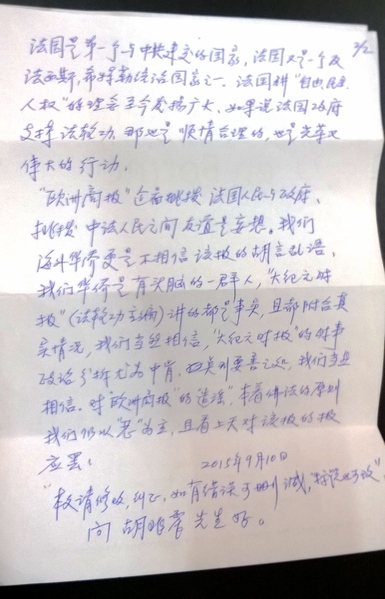 2/2
法国是第一个与中共建交的国家,法国又是一个反
法西斯,希特勒统治国家之一。法国讲"自由民主
人权"的理念至今发扬广大。如果说法国政府
支持法轮功,那也是顺情合理的,也是光荣又
伟大的行动。
"欧洲商报"企图挑拨法国人民与政府、
挑拨中法人民之间友谊是妄想。我们
海外华侨更是不相信该报的胡言乱语,
我们华侨是有头脑的一群人,"大纪元时
报"(法轮功主编)讲的都是事实,且都附合真
实情况,我们当然相信,"大纪元时报"的时事
政论分析尤为中肯,我们当然
相信。对"欧洲商报"的造谣,本着佛法的原则
我们仍以"忍"为主,且看上天对该报的报
应罢!
2015年9月10日
"敬请修改,纠正,如有错误可删减,"标题也可改"
问 胡 先生好。